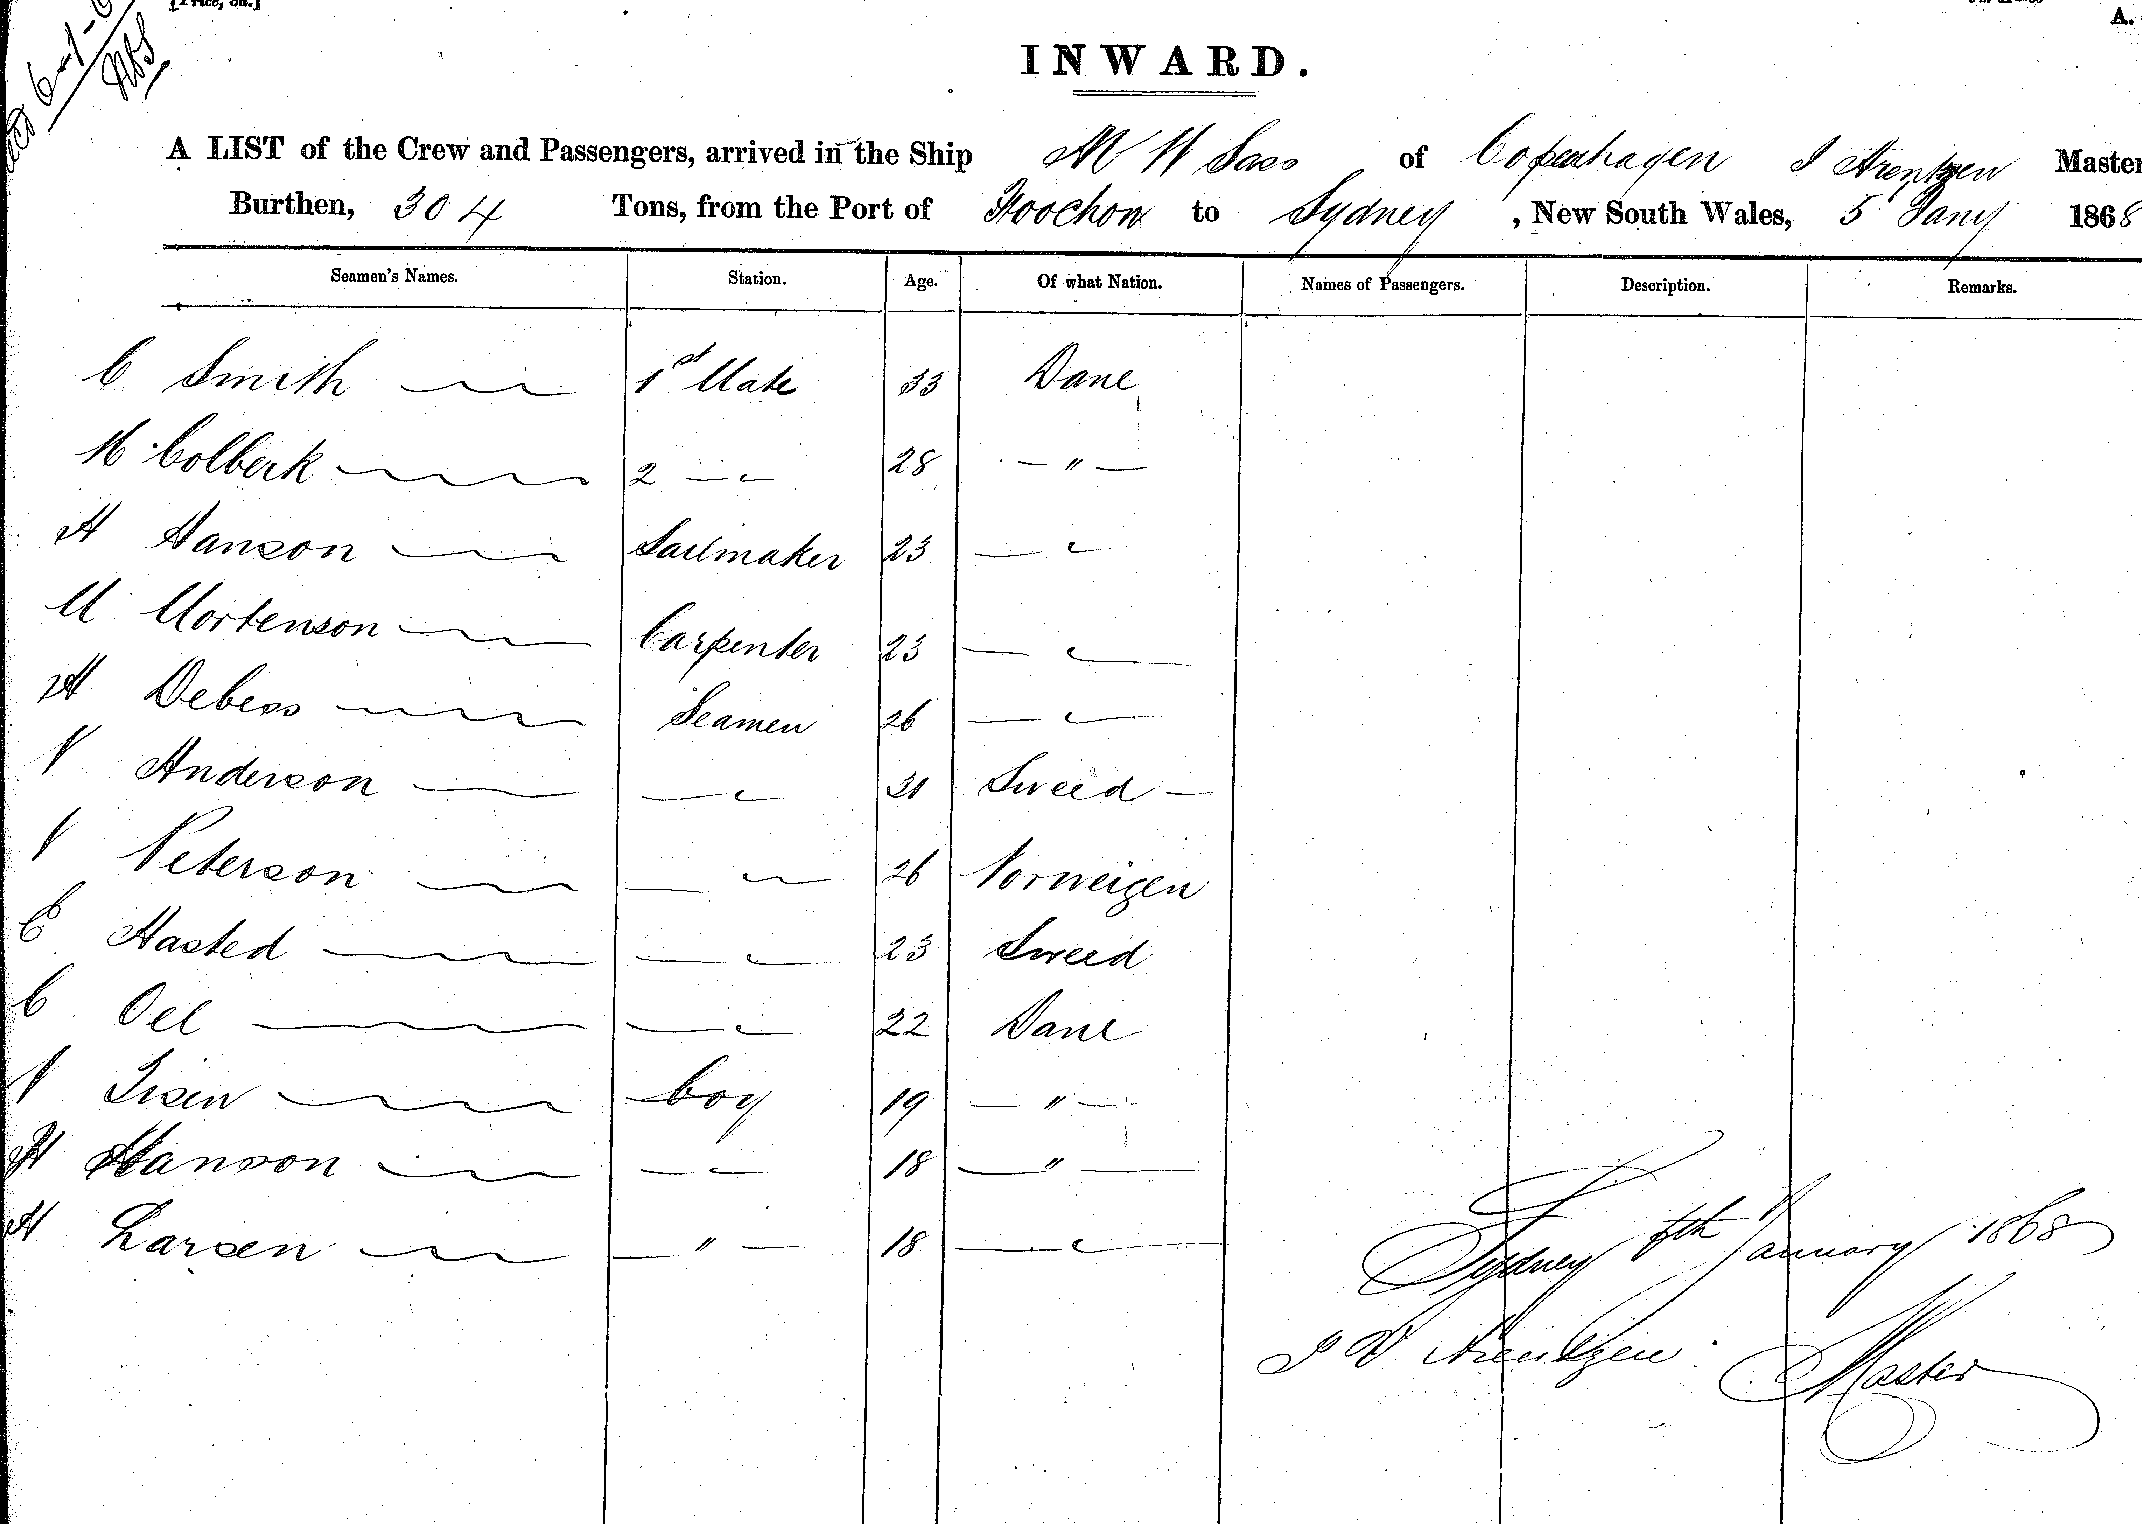 INWARD.
A LIST of the Crew and Passengers, arrived in the Ship M W Sass of Copenhagen J Arentzen Master
Burthen, 304 Tons, from the Port of Foochow to Sydney, New South Wales, 5 Jany 1868
Seamen's Names. Station. Age. Of what Nation. Names of Passengers. Description. Remarks.
C Smith 1st Mate 33 Dane
Colberk 2 — " 28 — " —
H Hanson Sailmaker 23 — "
M Mortenson Carpenter 23 — " —
H Debess Seamen 26 — " —
P Anderson — " 31 Sweed —
P Peterson — " — 26 Norweigen
C Hasted — " — 23 Sweed
C Oel — " — 22 Dane
P Isen boy 19 — " —
H Hanson — " — 18 — " —
H Larsen — " — 18 — " —
Sydney January 1868
J Arentzen Master